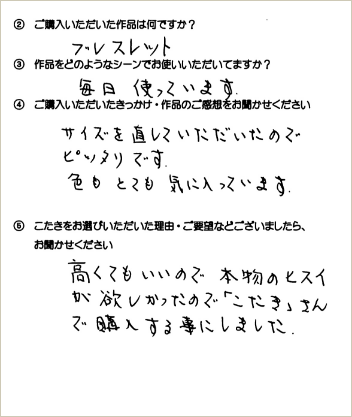 ② ご購入いただいた作品は何ですか？
ブレスレット
③ 作品をどのようなシーンでお使いいただいてますか？
毎日 使っています.
④ ご購入いただいたきっかけ・作品のご感想をお聞かせください
サイズを直していただいたので
ピッタリです.
色も とても 気に入っています.
⑤ こたきをお選びいただいた理由・ご要望などございましたら、
お聞かせください
高くてもいいので 本物のヒスイ
が 欲しかったので「こたき」さん
で 購入する事にしました.